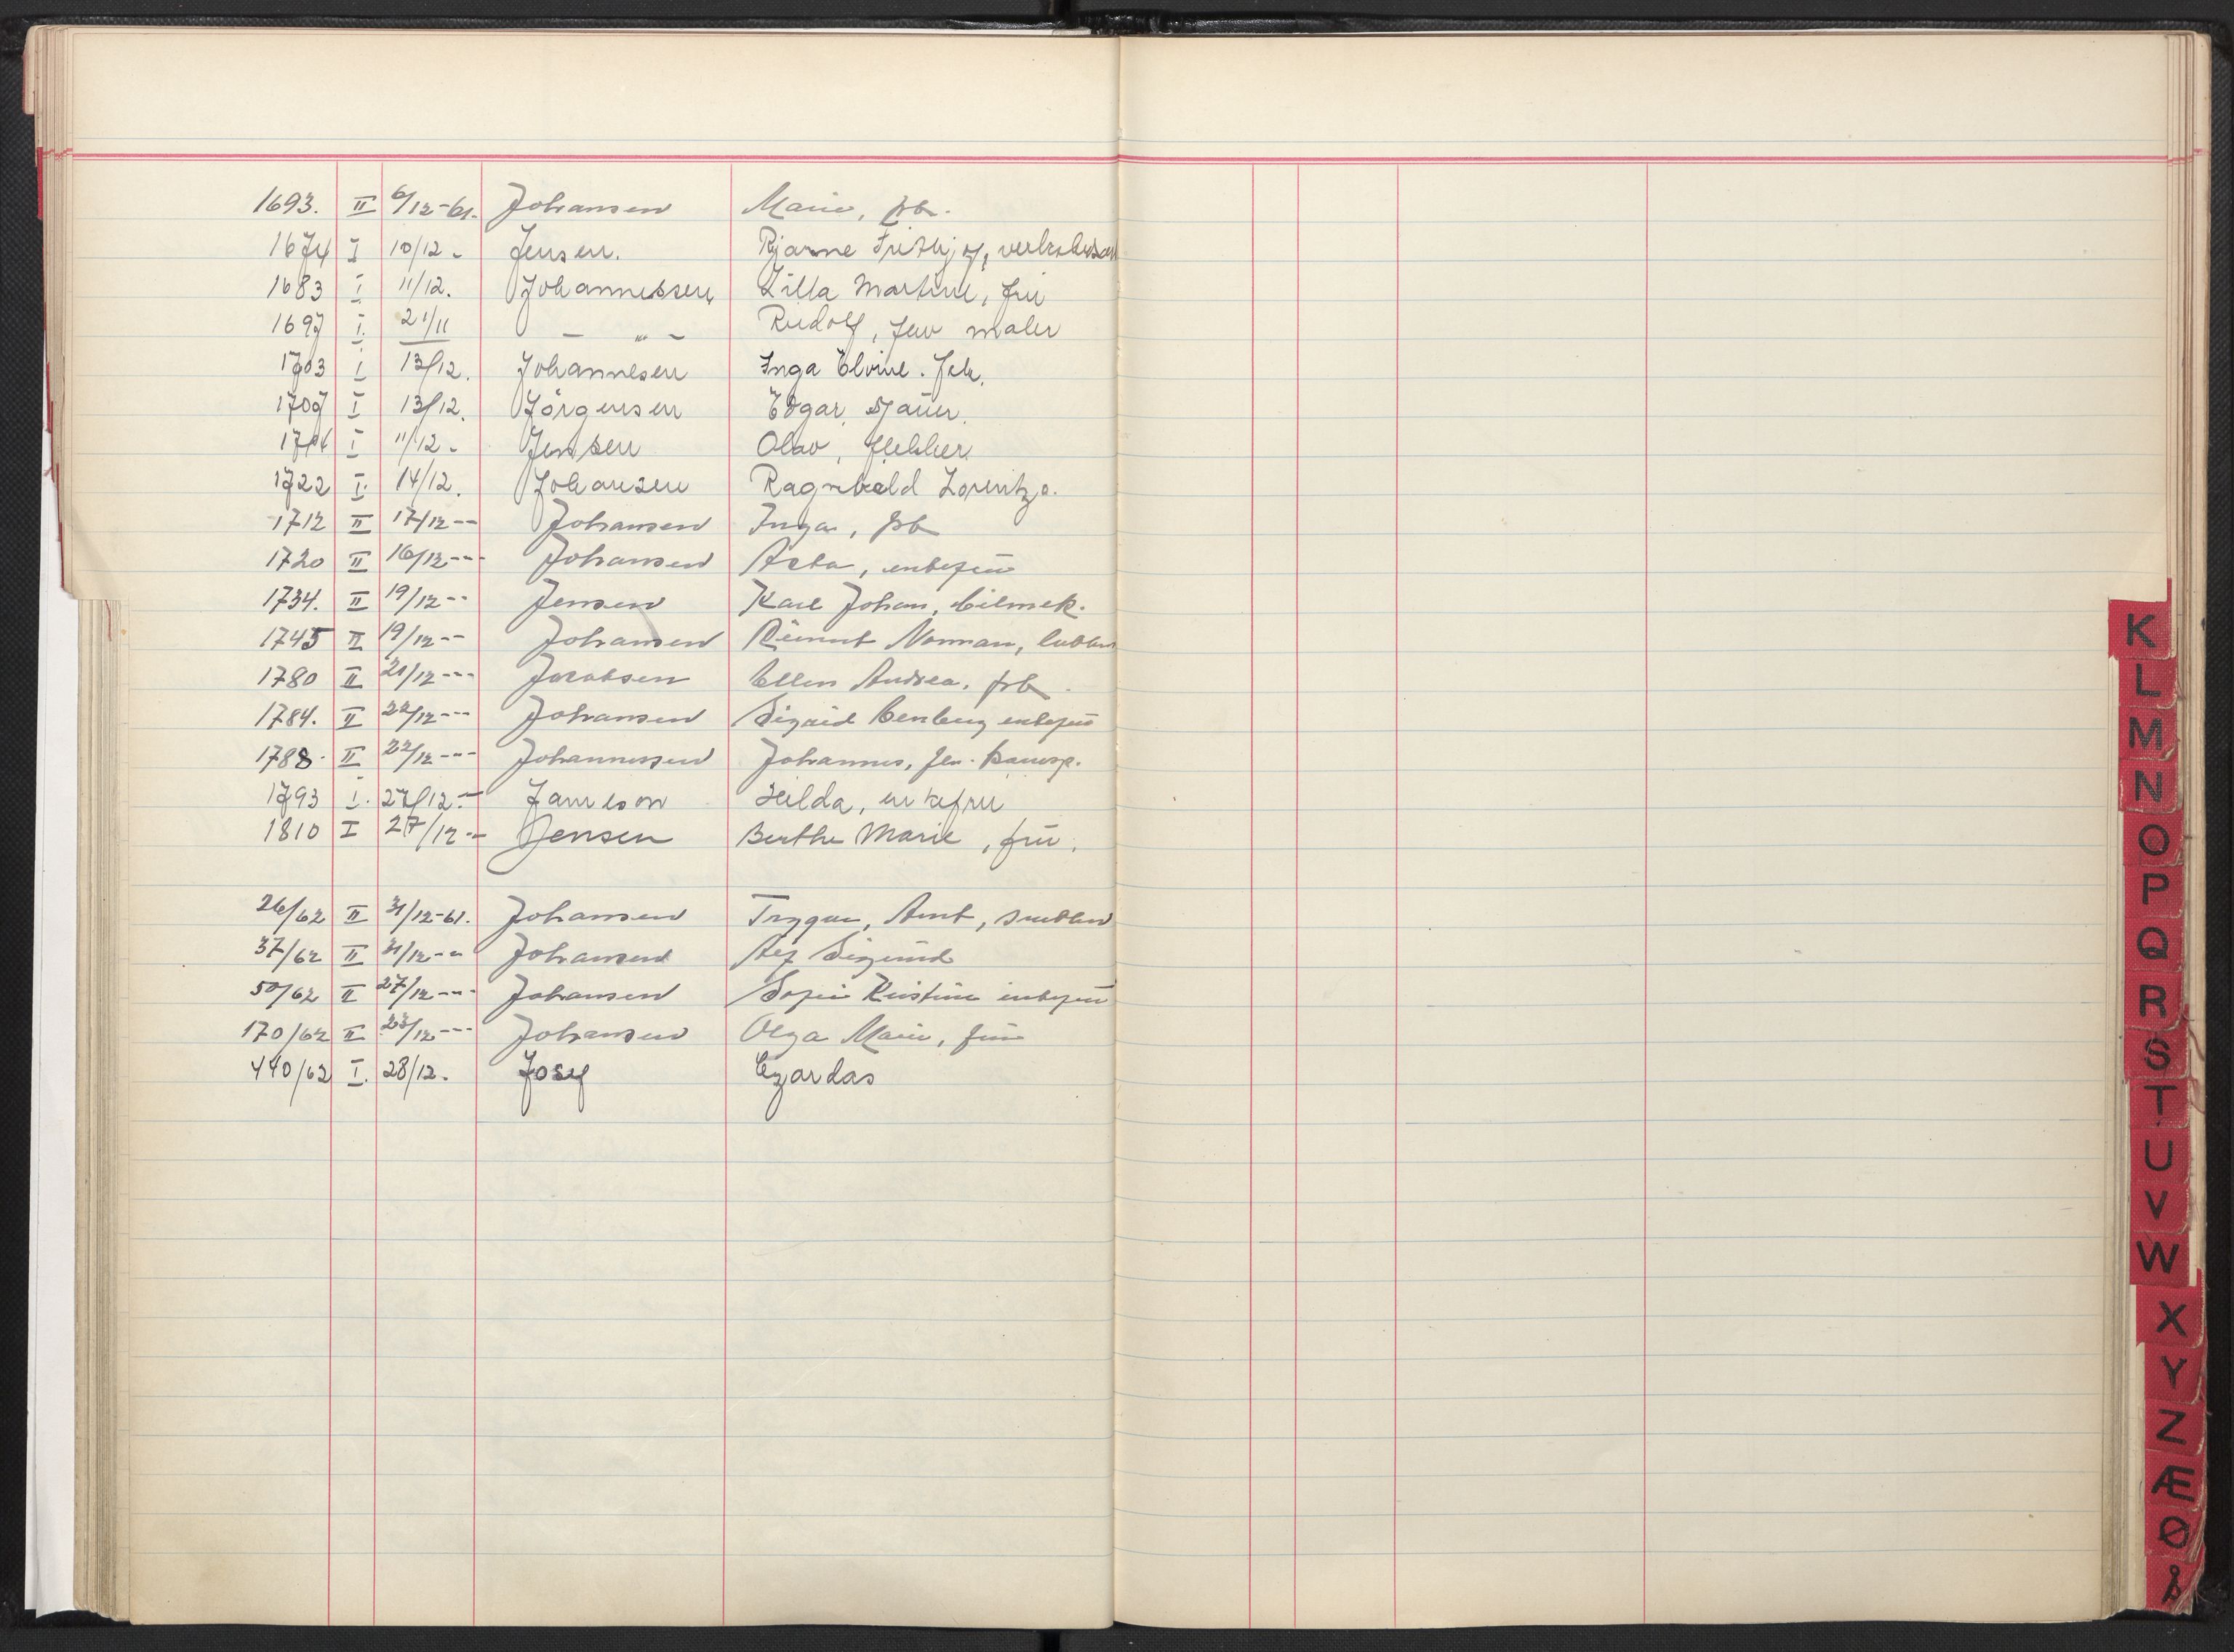 1693. II 6/12-61. Johansen Marie, frk.
1674 I 10/12 - Jensen. Bjarne Frithjof,
1683 I 11/12. Johannessen Lilla Martine, fru
1697 I. 21/11 - " - Rudolf, fev maler
1703 I 13/12. Johannesen Inga Elvine. frk.
1707 I 13/12. Jörgensen Edgar,
I 11/12 - Jensen Olav,
1722 I. 14/12. Johansen Ragnvald
1712 II 17/12 -- Johansen Inga, frk
1720 II 16/12 --- Johansen Asta, enkefru
1734. II 19/12 -- Jensen Karl Johan, bilmek.
1745 II 19/12 -- Johansen Norman,
1780 II 21/12 --- Jacobsen Ellen Andrea. frk.
1784. II 22/12 --- Johansen enkefru
1788. II 22/12 --- Johannessen Johannes,
1793 I. 27/12 - Jameson Hilda, enkefru
1810 I 27/12 -- Jensen Berthe Marie, fru.
26/62 II 31/12-61. Johansen Trygve, Arnt,
37/62 II 31/12 -- Johansen Alf Sigurd
50/62 II 27/12 --- Johansen Sofie Kristine enkefru
170/62 II 23/12 --- Johansen Olga Marie, fru
440/62 I. 28/12. Josef Czardas
K
L
M
N
O
P
Q
R
S
T
U
V
W
X
Y
Z
Æ
Ø
Å